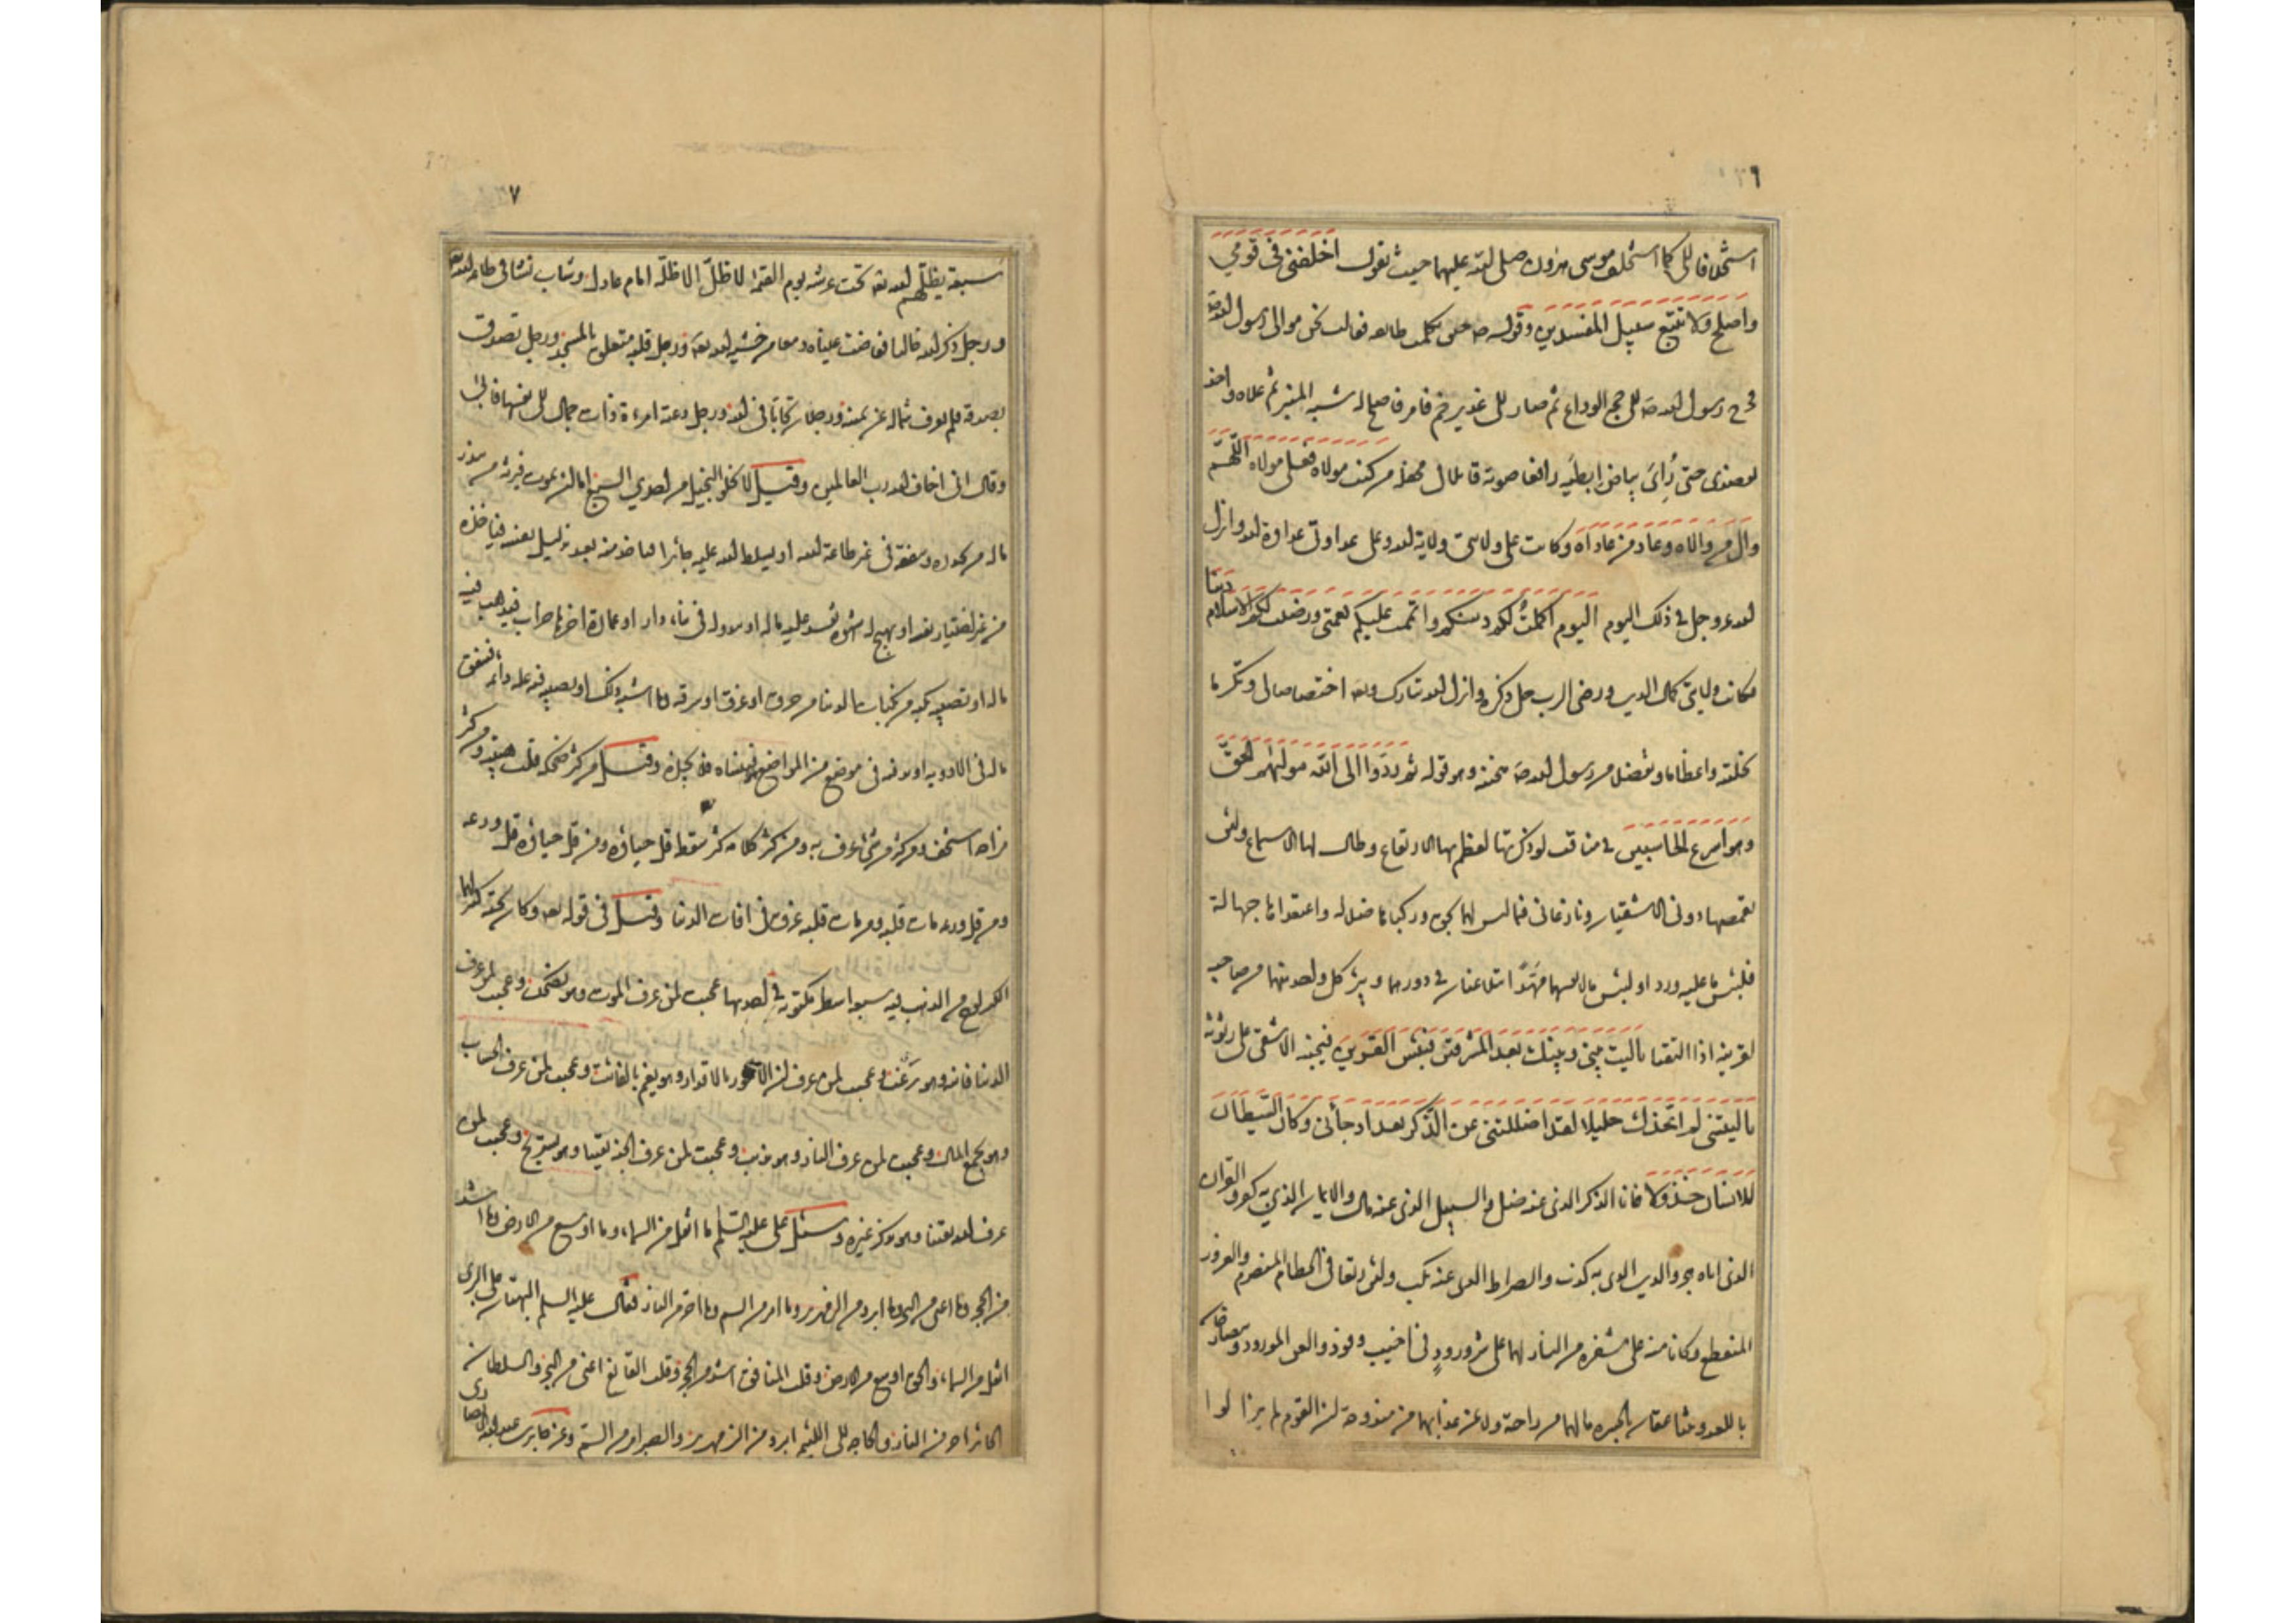 ٢٦
استخلافا لي كما استخلف موسى هرون صلى الله عليهما حيث يقول اخلفني في قومي
واصلح ولا تتبع سبيل المفسدين وقوله ص حين تكلمت طائفة فقالت نحن موالي رسول الله ص
فخرج رسول الله ص الى حجة الوداع ثم صار الى غدير خم فامر فاصلح له شبه المنبر ثم علاه واخذ
بعضدي حتى رُأى بياض ابطيه رافعا صوته قائلا في محفله من كنت مولاه فعلي مولاه اللهم
وال من والاه وعاد من عاداه وكانت على ولايتي ولاية الله وعلى عداوتي عداوة الله وانزل
الله عز وجل في ذلك اليوم اليوم اكملت لكم دينكم واتممت عليكم نعمتي ورضيت لكم الاسلام دينا
فكانت ولايتي كمال الدين ورضى الرب جل ذكره وانزل الله تبارك وتعالى اختصاصا لي وتكرما
نحلنيه واعظاما وتفضلا من رسول الله ص منحنيه وهو قوله ثم ردوا الى الله موليهم الحق
وهو اسرع الحاسبين في مناقب لو ذكرتها لعظم بها الارتفاع وطال لها الاستماع ولئن
تقمصها دوني الاشقيان ونازعاني فيما ليس لهما بحق وركباها ضلالة واعتقداها جهالة
فلبئس ما عليه وردا ولبئس ما لانفسهما مهدا يتلاعنان في دورهما ويتبرء كل واحد منهما من صاحبه
لقرينه اذا التقيا يا ليت بيني وبينك بعد المشرقين فبئس القرين فيجيبه الاشقى على رثوثة
يا ليتني لم اتخذك خليلا لقد اضللتني عن الذكر بعد اذ جائني وكان الشيطان
للانسان خذولا فانا الذكر الذي عنه ضل والسبيل الذي عنه مال والايمان الذي به كفر والقرآن
الذي اياه هجر والدين الذي به كذب والصراط الذي عنه نكب ولئن رتعا في الحطام المنصرم والغرور
المنقطع وكانا منه على شفا حفرة من النار لهما على شر ورود في اخيب وفود والعن المورود يتصارخان
باللعنة ويتناعقان بالحسرة ما لهما من راحة ولا عن عذابهما من مندوحة ان القوم لم يزالوا
٢٧
سبعة يظلهم الله تعه تحت عرشه يوم القيمة لا ظل الا ظله امام عادل وشاب نشا في طاعة الله تعه
ورجل ذكر الله خاليا ففاضت عيناه دمعا من خشية الله تعه ورجل قلبه متعلق بالمسجد ورجل تصدق
بصدقة فلم يعرف شماله عن يمينه ورجلان تحابا في الله ورجل دعته امرءة ذات جمال الى نفسها فابى
وقال اني اخاف الله رب العالمين وقيل لا يخلو البخيل من احدى السبع اما ان يموت فيرثه من يبذر
ماله من بعده وينفقه في غير طاعة الله او يسلط الله عليه جائرا فياخذه منه بعد تذليل نفسه فياخذه
من غير اختيار نفسه او يهيج له شهوة تفسد عليه ماله او يبدو له في بناء دار او عمارة ارض خراب فيذهب فيه
ماله او تصيبه نكبة من نكبات الدنيا من حرق او غرق او سرقة وما اشبه ذلك او يصيبه علة دائمة فينفق
ماله في الادوية او يدفنه في موضع من المواضع فينساه فلا يجده وقيل من كثر ضحكه قلت هيبته ومن كثر
مزاحه استخف ومن كثر من شئ عرف به ومن كثر كلامه كثر سقطه قل حياؤه ومن قل حياؤه قل ورعه
ومن قل ورعه مات قلبه ومن مات قلبه غرق في افات الدنيا وقيل في قوله تعه وكان تحته كنز لهما
الكنز لوح من الذهب فيه سبعة اسطر مكتوبة في احديها عجبت لمن عرف الموت وهو يضحك وعجبت لمن عرف
الدنيا فانية وهو يرغب وعجبت لمن عرف ان الامور بالاقدار وهو يغتم بالفائت وعجبت لمن عرف الحساب
وهو يجمع المال وعجبت لمن عرف النار وهو يذنب وعجبت لمن عرف الجنة يقينا وهو يستريح وعجبت لمن
عرف الله يقينا وهو يذكر غيره وسئل علي عليه السلم ما اثقل من السماء وما اوسع من الارض وما اشد
من الحجر وما اغنى من البحر وما ابرد من الزمهرير وما امر من السم وما احر من النار فقال عليه السلم البهتان على البري
اثقل من السماء والحق اوسع من الارض وقلب المنافق اشد من الحجر وقلب القانع اغنى من البحر والسلطان
الجائر احر من النار والحاجة الى اللئيم ابرد من الزمهرير والصبر امر من السم وعن جابر بن عبد الله الانصاري